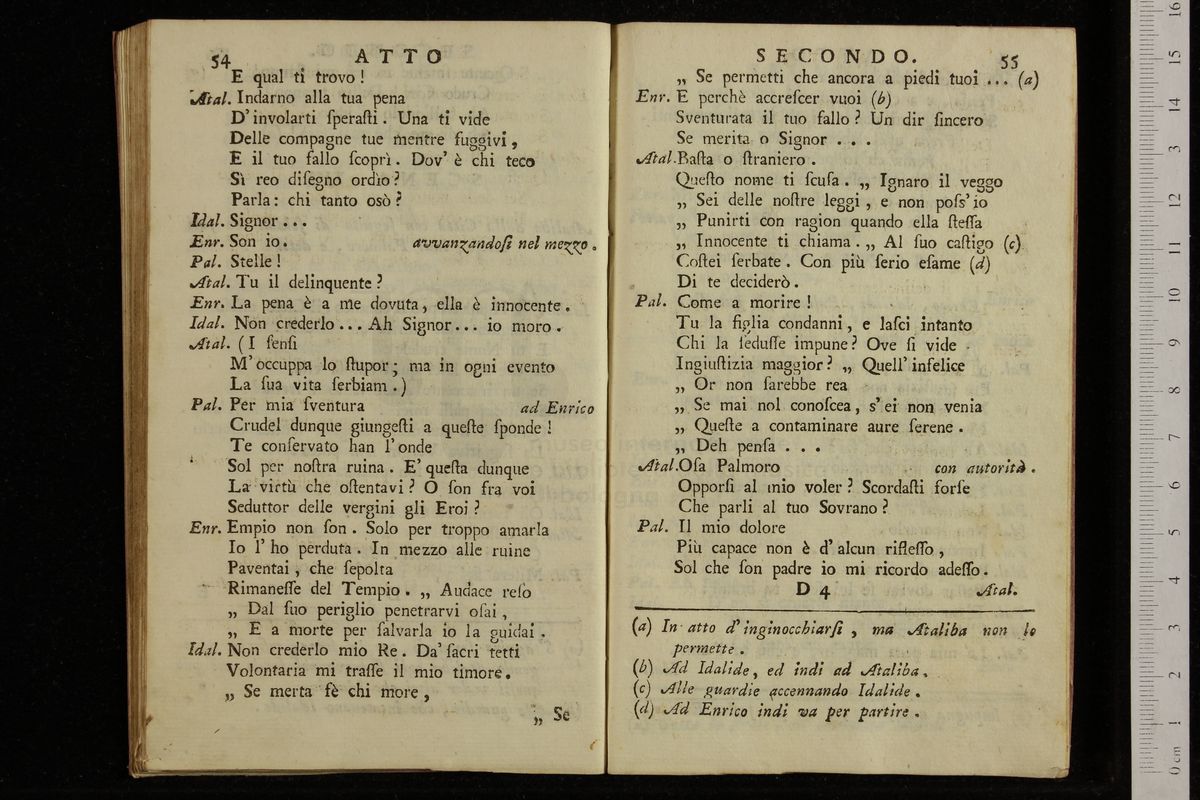 54 ATTO
E qual ti trovo !
Atal. Indarno alla tua pena
D' involarti ſperaſti . Una ti vide
Delle compagne tue mentre fuggivi ,
E il tuo fallo ſcoprì . Dov' è chi teco
Sì reo diſegno ordìo ?
Parla : chi tanto osò ?
Idal. Signor ...
Enr. Son io . avvanzandoſi nel mezzo .
Pal. Stelle !
Atal. Tu il delinquente ?
Enr. La pena è a me dovuta , ella è innocente .
Idal. Non crederlo ... Ah Signor ... io moro .
Atal. ( I ſenſi
M' occuppa lo ſtupor ; ma in ogni evento
La ſua vita ſerbiam . )
Pal. Per mia ſventura ad Enrico
Crudel dunque giungeſti a queſte ſponde !
Te conſervato han l' onde
Sol per noſtra ruina . E' queſta dunque
La virtù che oſtentavi ? O ſon fra voi
Seduttor delle vergini gli Eroi ?
Enr. Empio non ſon . Solo per troppo amarla
Io l' ho perduta . In mezzo alle ruine
Paventai , che ſepolta
Rimaneſſe del Tempio . „ Audace reſo
„ Dal ſuo periglio penetrarvi oſai ,
„ E a morte per ſalvarla io la guidai .
Idal. Non crederlo mio Re . Da' ſacri tetti
Volontaria mi traſſe il mio timore .
„ Se merta fè chi more ,
„ Se
SECONDO. 55
„ Se permetti che ancora a piedi tuoi ... (a)
Enr. E perchè accreſcer vuoi (b)
Sventurata il tuo fallo ? Un dir ſincero
Se merita o Signor . . .
Atal. Baſta o ſtraniero .
Queſto nome ti ſcuſa . „ Ignaro il veggo
„ Sei delle noſtre leggi , e non poſs' io
„ Punirti con ragion quando ella ſteſſa
„ Innocente ti chiama . „ Al ſuo caſtigo (c)
Coſtei ſerbate . Con più ſerio eſame (d)
Di te deciderò .
Pal. Come a morire !
Tu la figlia condanni , e laſci intanto
Chi la ſeduſſe impune ? Ove ſi vide
Ingiuſtizia maggior ? „ Quell' infelice
„ Or non ſarebbe rea
„ Se mai nol conoſcea , s' ei non venia
„ Queſte a contaminare aure ſerene .
„ Deh penſa . . .
Atal. Oſa Palmoro con autorità .
Opporſi al mio voler ? Scordaſti forſe
Che parli al tuo Sovrano ?
Pal. Il mio dolore
Più capace non è d' alcun rifleſſo ,
Sol che ſon padre io mi ricordo adeſſo .
D 4 Atal.
(a) In atto d' inginocchiarſi , ma Ataliba non lo
permette .
(b) Ad Idalide , ed indi ad Ataliba .
(c) Alle guardie accennando Idalide .
(d) Ad Enrico indi va per partire .
0 cm 1 2 3 4 5 6 7 8 9 10 11 12 13 14 15 16